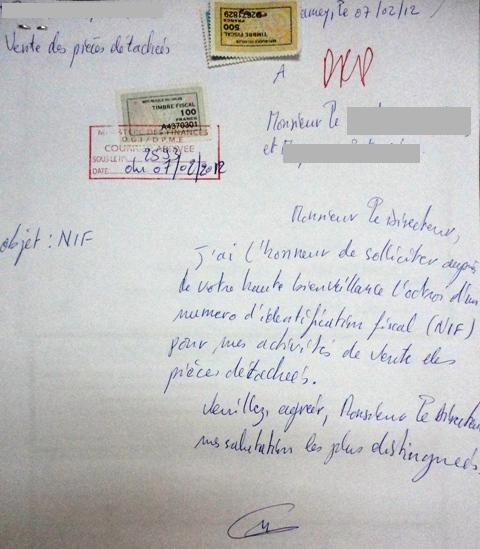 amey, le 07/02/12
Vente des pièces détachées
TIMBRE FISCAL
500
FRANCS
A
REPUBLIQUE DU NIGER
TIMBRE FISCAL
100
FRANCS
A4370301
MINISTERE DES FINANCES
DGI/DPME
COURRIER ARRIVEE
SOUS LE N° 2593
DATE du 07/02/2012
Monsieur le
et
Monsieur le Directeur,
objet : NIF
J'ai l'honneur de solliciter auprès
de votre haute bienveillance l'octroi d'un
numero d'identification fiscal (NIF)
pour mes activités de vente des
pièces détachées.
Veuillez agréer, Monsieur le Directeur
mes salutation les plus distinguées.